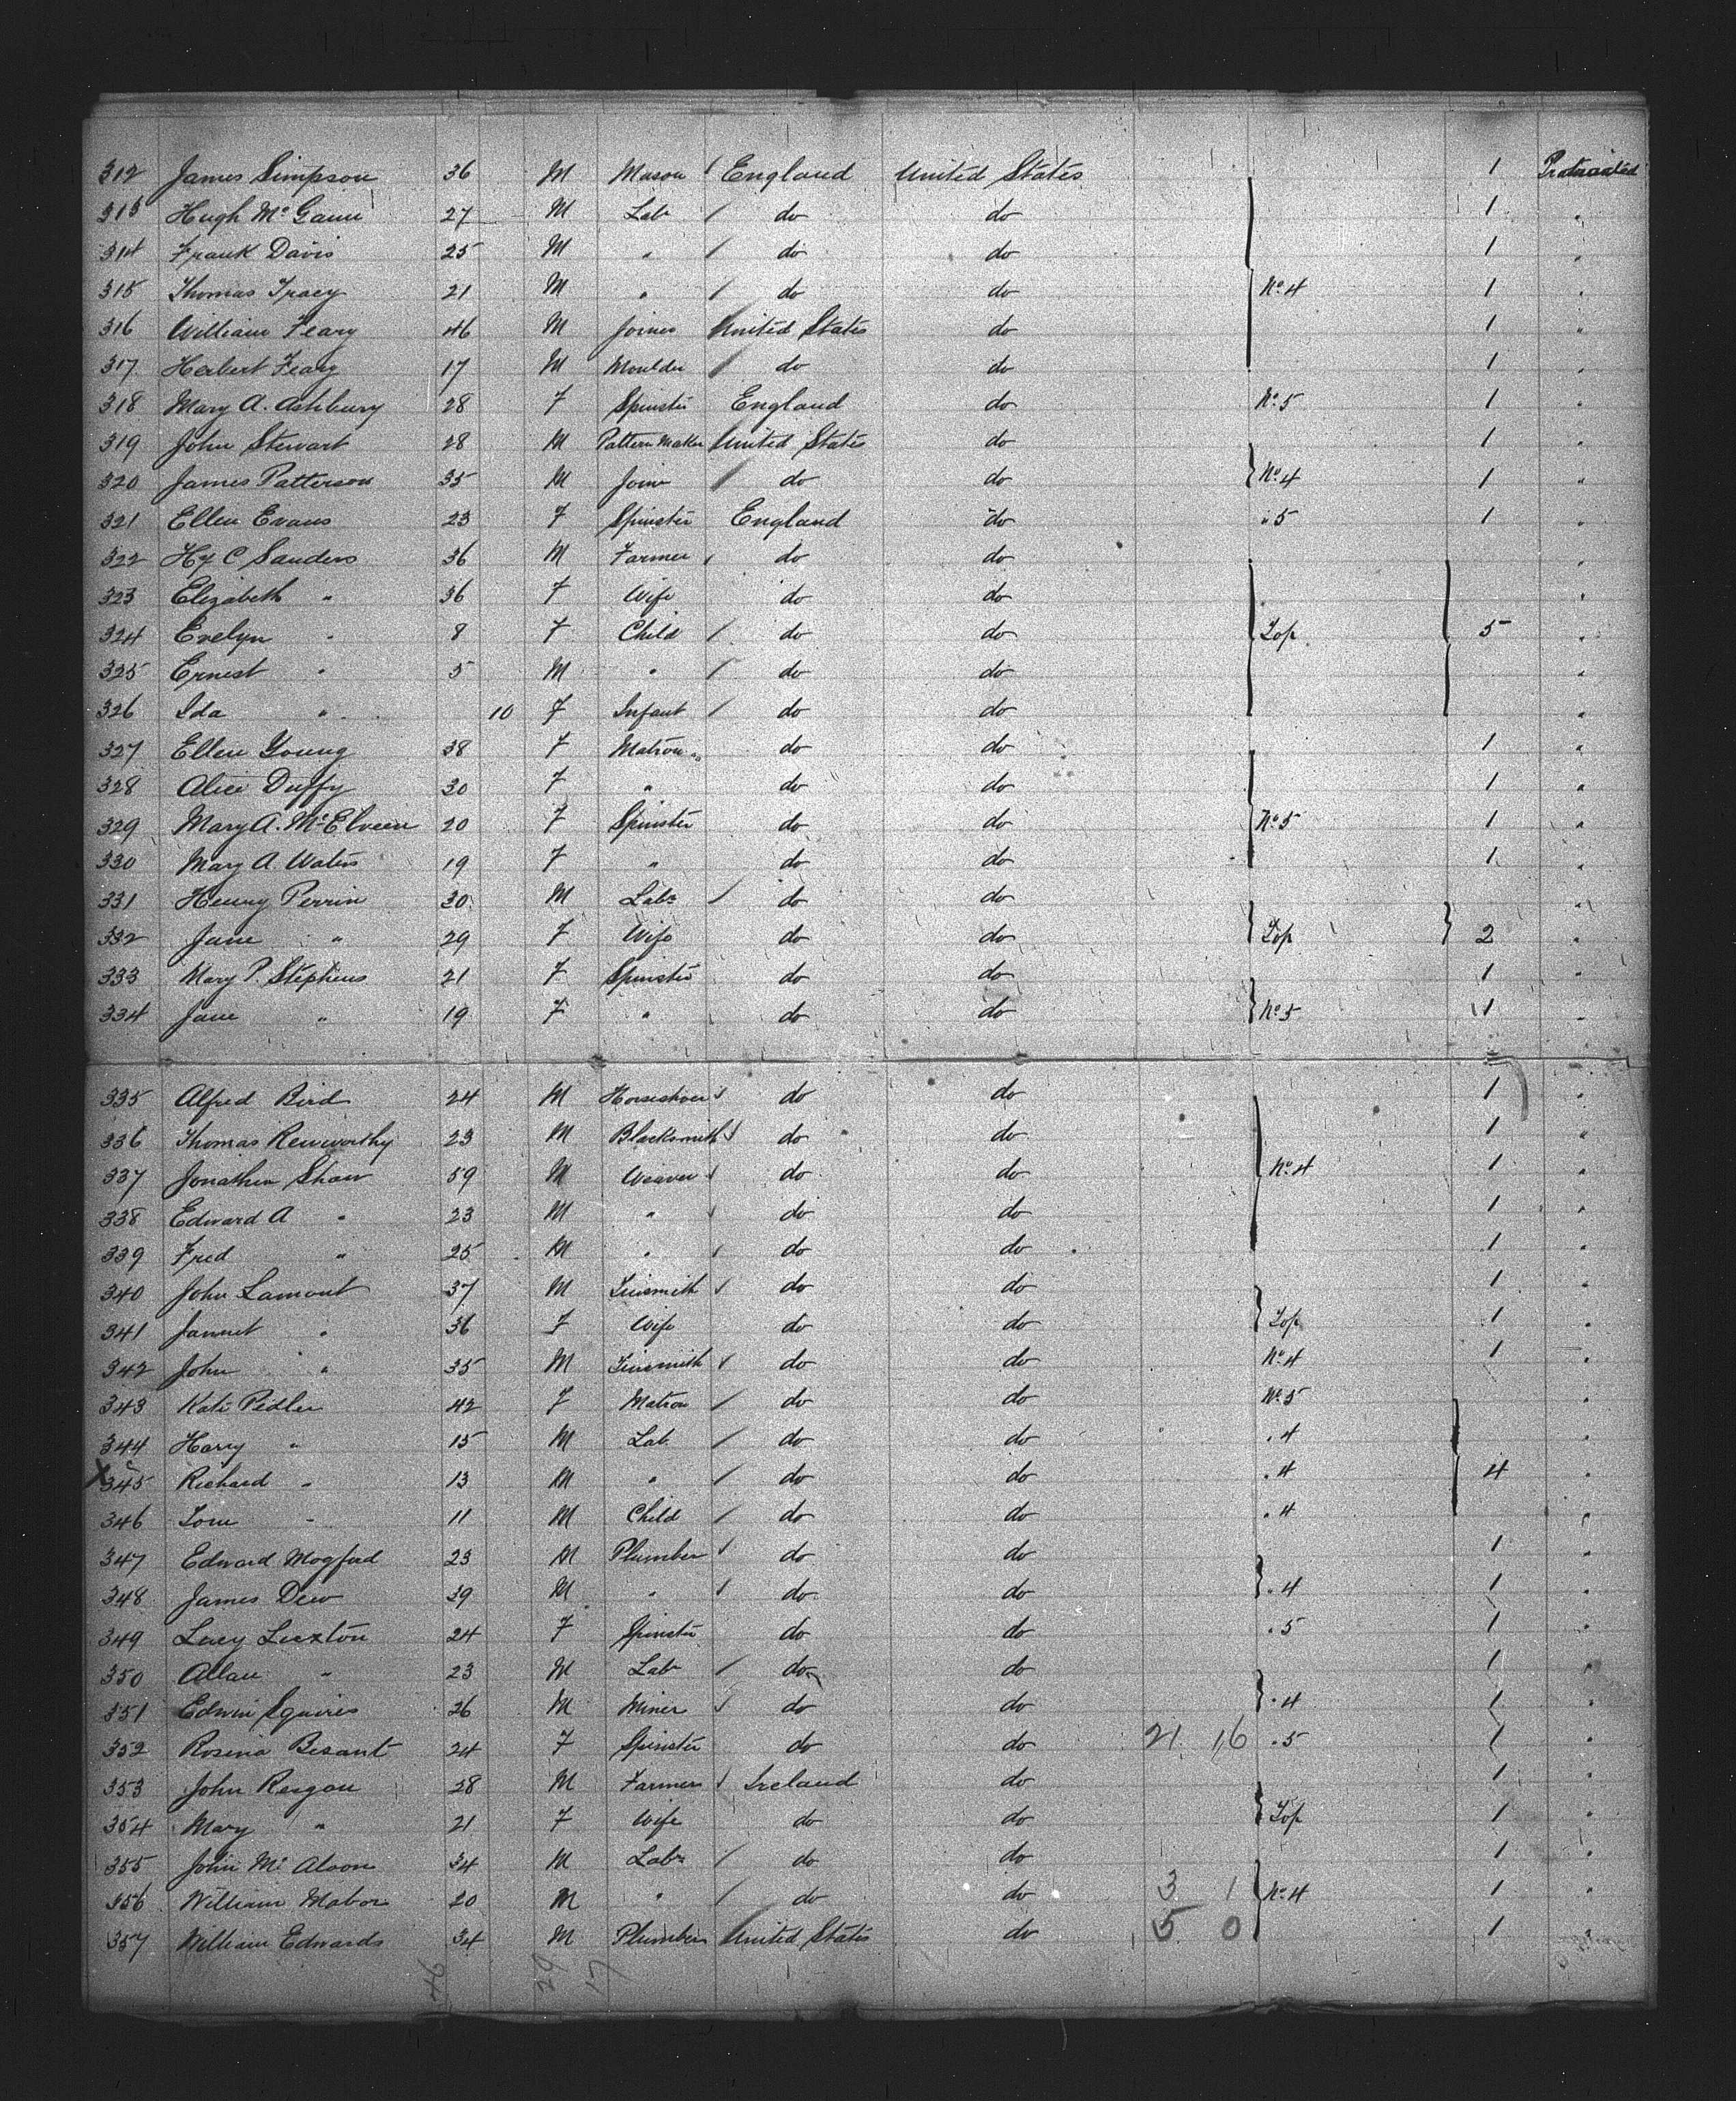 312 James Simpson 36 M Mason England United States 1 Protracted
313 Hugh McGann 27 M Lab do do 1 "
314 Frank Davis 25 M " do do 1 "
315 Thomas Tracy 21 M " do do No 4 1 "
316 William Feary 46 M Joiner United States do 1 "
317 Herbert Feary 17 M Moulder do do 1 "
318 Mary A. Ashbury 28 F Spinster England do No 5 1 "
319 John Stewart 28 M Pattern Maker United States do 1 "
320 James Patterson 35 M Joinr do do No 4 1 "
321 Ellen Evans 23 F Spinster England do " 5 1 "
322 Hy C Sanders 36 M Farmer do do "
323 Elizabeth " 36 F Wife do do "
324 Evelyn " 8 F Child do do Top 5 "
325 Ernest " 5 M " do do "
326 Ida " 10 F Infant do do "
327 Ellen Young 38 F Matron do do 1 "
328 Alice Duffy 30 F " do do 1 "
329 Mary A. McElveen 20 F Spinster do do No 5 1 "
330 Mary A Waters 19 F " do do 1 "
331 Henry Perrin 30 M Labr do do "
332 Jane " 29 F Wife do do Top 2 "
333 Mary P. Stephens 21 F Spinster do do 1 "
334 Jane " 19 F " do do No 5 1 "
335 Alfred Bird 24 M Horseshoer do do 1 "
336 Thomas Renworthy 23 M Blacksmith do do 1 "
337 Jonathan Shaw 59 M Weaver do do No 4 1 "
338 Edward A " 23 M " do do 1 "
339 Fred " 25 M " do do 1 "
340 John Lamont 37 M Tinsmith do do 1 "
341 Jannet " 36 F Wife do do Top 1 "
342 John " 35 M Tinsmith do do No 4 1 "
343 Kate Pedler 42 F Matron do do No 5 "
344 Harry " 15 M Lab do do " 4 "
X 345 Richard " 13 M " do do " 4 4 "
346 Tom " 11 M Child do do " 4 "
347 Edward Mogford 23 M Plumber do do 1 "
348 James Dew 29 M " do do " 4 1 "
349 Lucy Luxton 24 F Spinster do do " 5 1 "
350 Allan " 23 M Lab do do 1 "
351 Edwin Squires 26 M Miner do do " 4 1 "
352 Rosina Besant 24 F Spinster do do 21 16 " 5 1 "
353 John Reagan 28 M Farmer Ireland do 1 "
354 Mary " 21 F Wife do do Top 1 "
355 John McAloon 34 M Labr do do 1 "
356 William Mabor 20 M " do do 3 1 No 4 1 "
357 William Edwards 34 M Plumber United States do 5 0 1 "